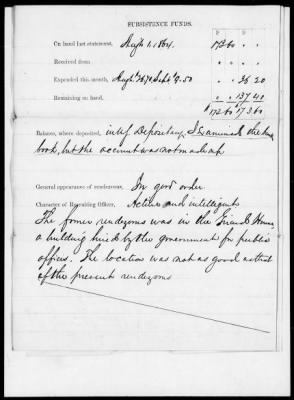 SUBSISTENCE FUNDS.
On hand last statement, Augt 1. 1864. 173 60
Received from
Expended this month, Augt 28.70, Sept 7.50 36 20
Remaining on hand, 137 40
$ 173 60 173 60
Balance, where deposited, in U.S. Depository, I examined the
book, but the account was not made up
General appearance of rendezvous, In good order
Character of Recruiting Officer, Active and intelligent
The former rendezvous was in the Girard House
a building hired by the government for public
offices. The location was not as good as that
of the present rendezvous